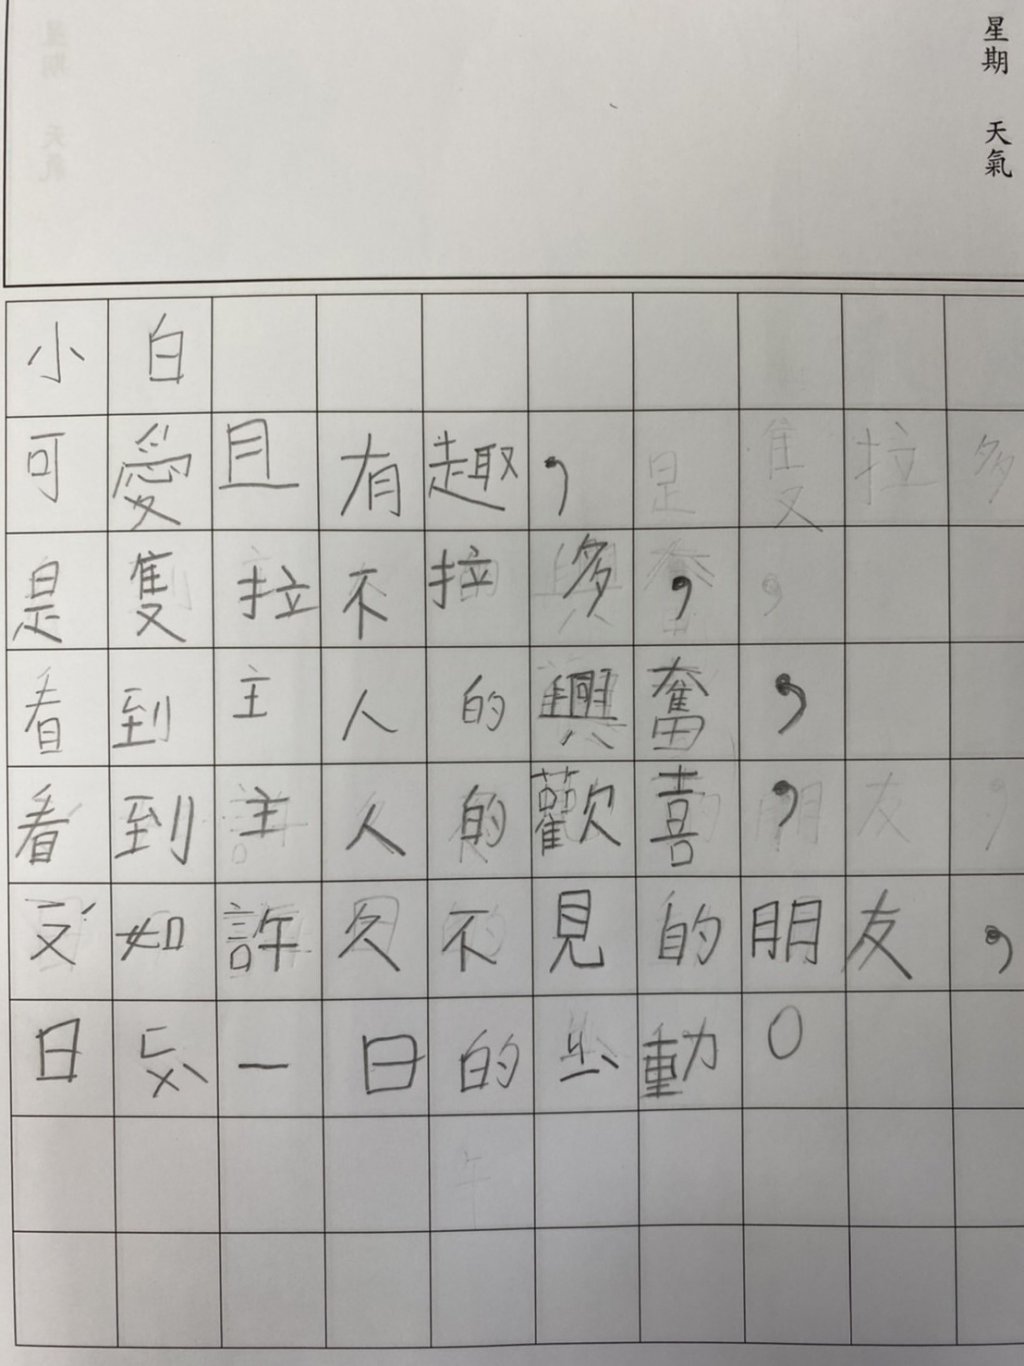 星期 天氣
小白
可愛且有趣，
是隻拉不拉多，
看到主人的興奮，
看到主人的歡喜，
又如許久不見的朋友，
日 一日的 動。